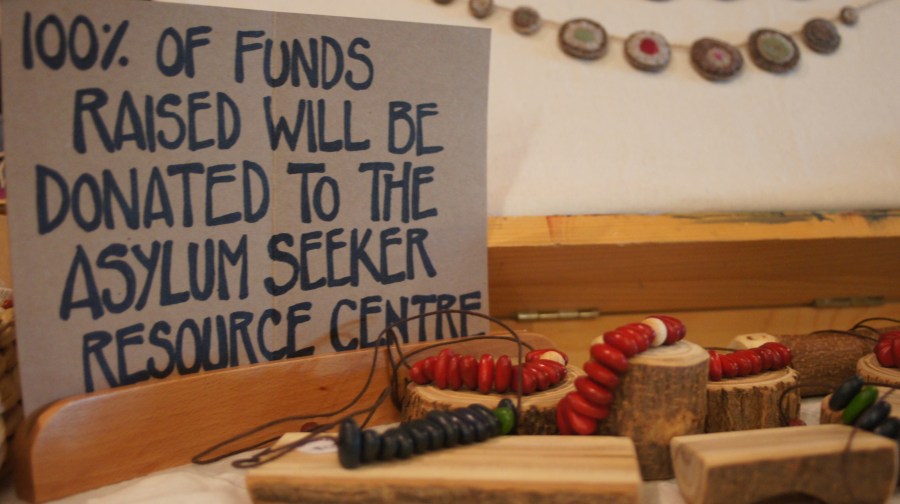 100% OF FUNDS
RAISED WILL BE
DONATED TO THE
ASYLUM SEEKER
RESOURCE CENTRE